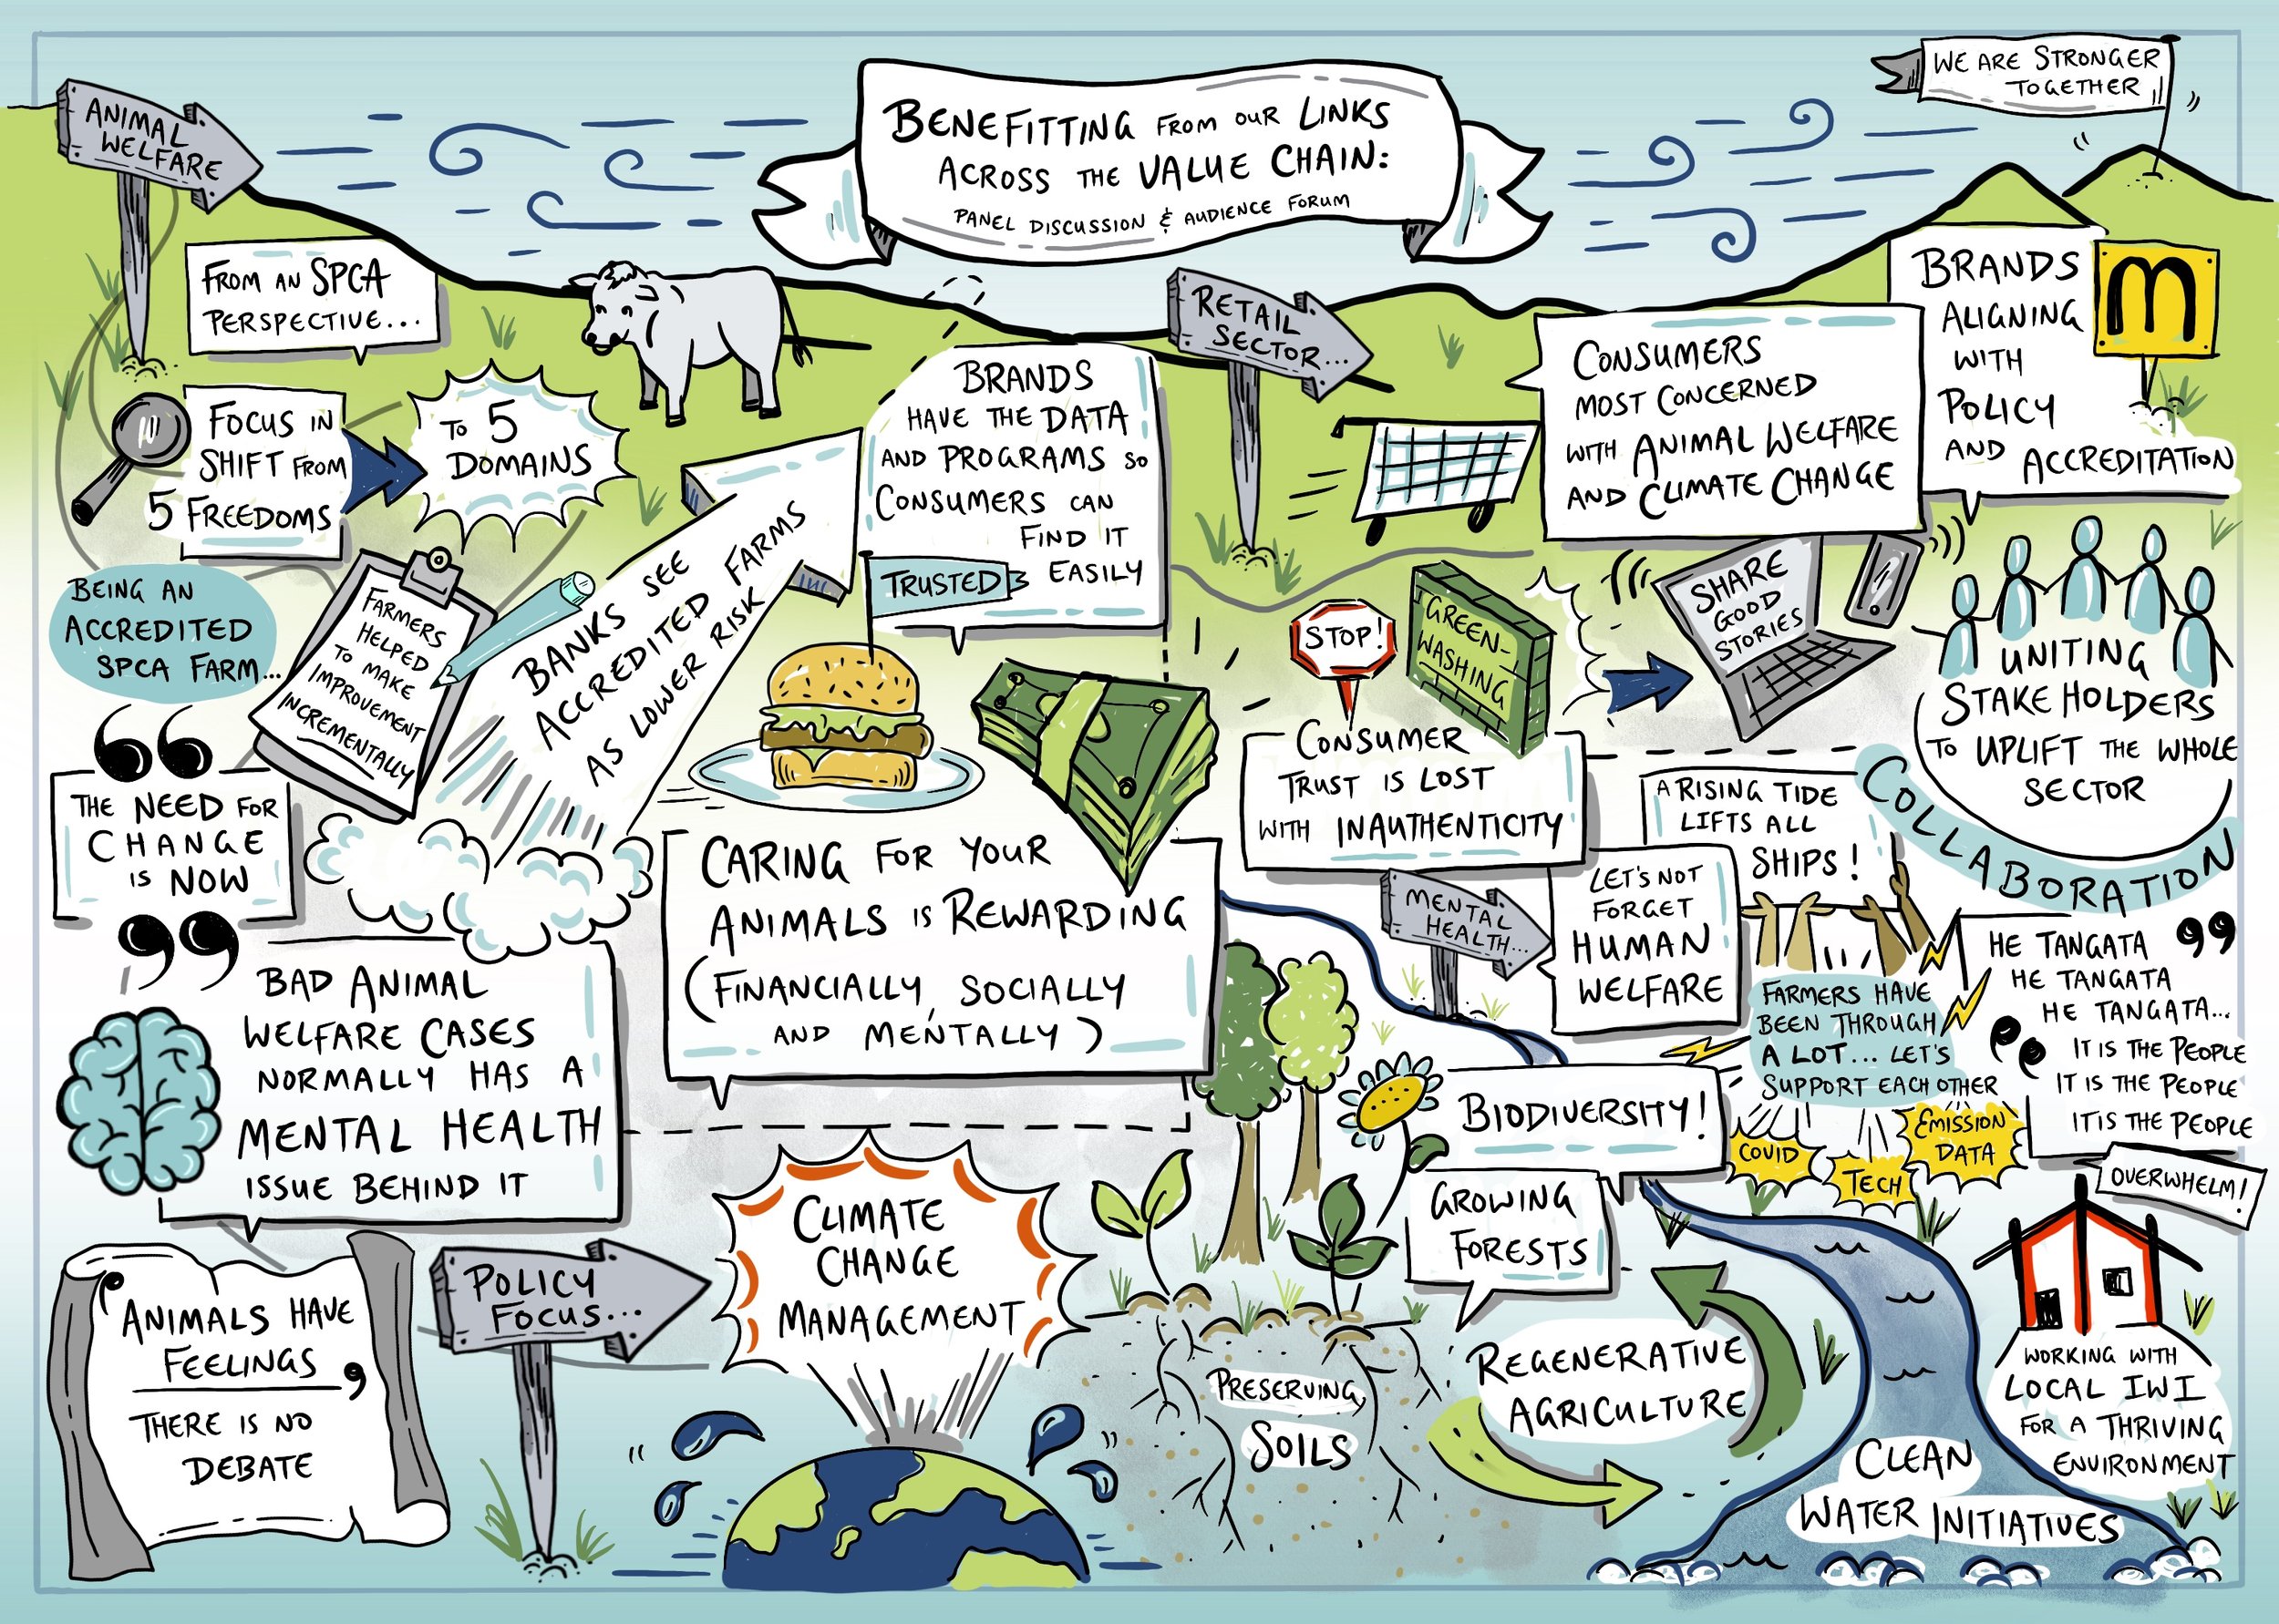 BENEFITTING FROM OUR LINKS
ACROSS THE VALUE CHAIN:
PANEL DISCUSSION & AUDIENCE FORUM
WE ARE STRONGER
TOGETHER
ANIMAL
WELFARE
FROM AN SPCA
PERSPECTIVE...
FOCUS IN
SHIFT FROM
5 FREEDOMS
TO 5
DOMAINS
BEING AN
ACCREDITED
SPCA FARM...
FARMERS
HELPED
TO MAKE
IMPROVEMENT
INCREMENTALLY
BANKS SEE
ACCREDITED FARMS
AS LOWER RISK
"
THE NEED FOR
CHANGE
IS NOW
"
BAD ANIMAL
WELFARE CASES
NORMALLY HAS A
MENTAL HEALTH
ISSUE BEHIND IT
'ANIMALS HAVE
FEELINGS'
THERE IS NO
DEBATE
BRANDS
HAVE THE DATA
AND PROGRAMS SO
CONSUMERS CAN
FIND IT
EASILY
TRUSTED
CARING FOR YOUR
ANIMALS IS REWARDING
(FINANCIALLY, SOCIALLY
AND MENTALLY)
RETAIL
SECTOR...
CONSUMERS
MOST CONCERNED
WITH ANIMAL WELFARE
AND CLIMATE CHANGE
BRANDS
ALIGNING
WITH
POLICY
AND ACCREDITATION
M
STOP!
GREEN-
WASHING
CONSUMER
TRUST IS LOST
WITH INAUTHENTICITY
SHARE
GOOD
STORIES
UNITING
STAKEHOLDERS
TO UPLIFT THE WHOLE
SECTOR
COLLABORATION
A RISING TIDE
LIFTS ALL
SHIPS!
MENTAL
HEALTH...
LET'S NOT
FORGET
HUMAN
WELFARE
FARMERS HAVE
BEEN THROUGH
A LOT... LET'S
SUPPORT EACH OTHER
COVID
TECH
EMISSION
DATA
OVERWHELM!
HE TANGATA "
HE TANGATA
HE TANGATA...
" IT IS THE PEOPLE
IT IS THE PEOPLE
IT IS THE PEOPLE
POLICY
FOCUS...
CLIMATE
CHANGE
MANAGEMENT
PRESERVING
SOILS
BIODIVERSITY!
GROWING
FORESTS
REGENERATIVE
AGRICULTURE
CLEAN
WATER INITIATIVES
WORKING WITH
LOCAL IWI
FOR A THRIVING
ENVIRONMENT